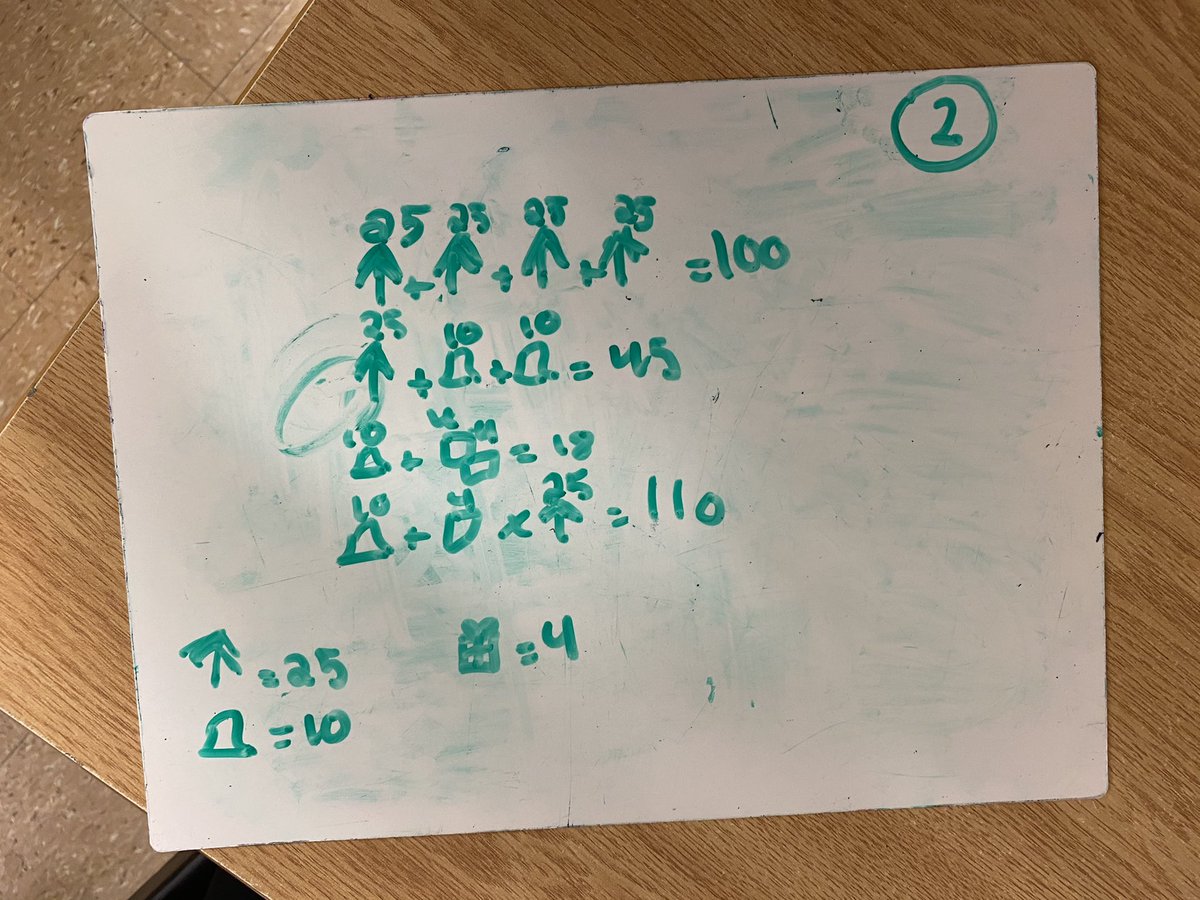 2
25 25 25 25
+ + + = 100
25 10 10
+ + = 45
10 4 4
+ = 18
10 4 25
+ x = 110
= 25
= 4
= 10